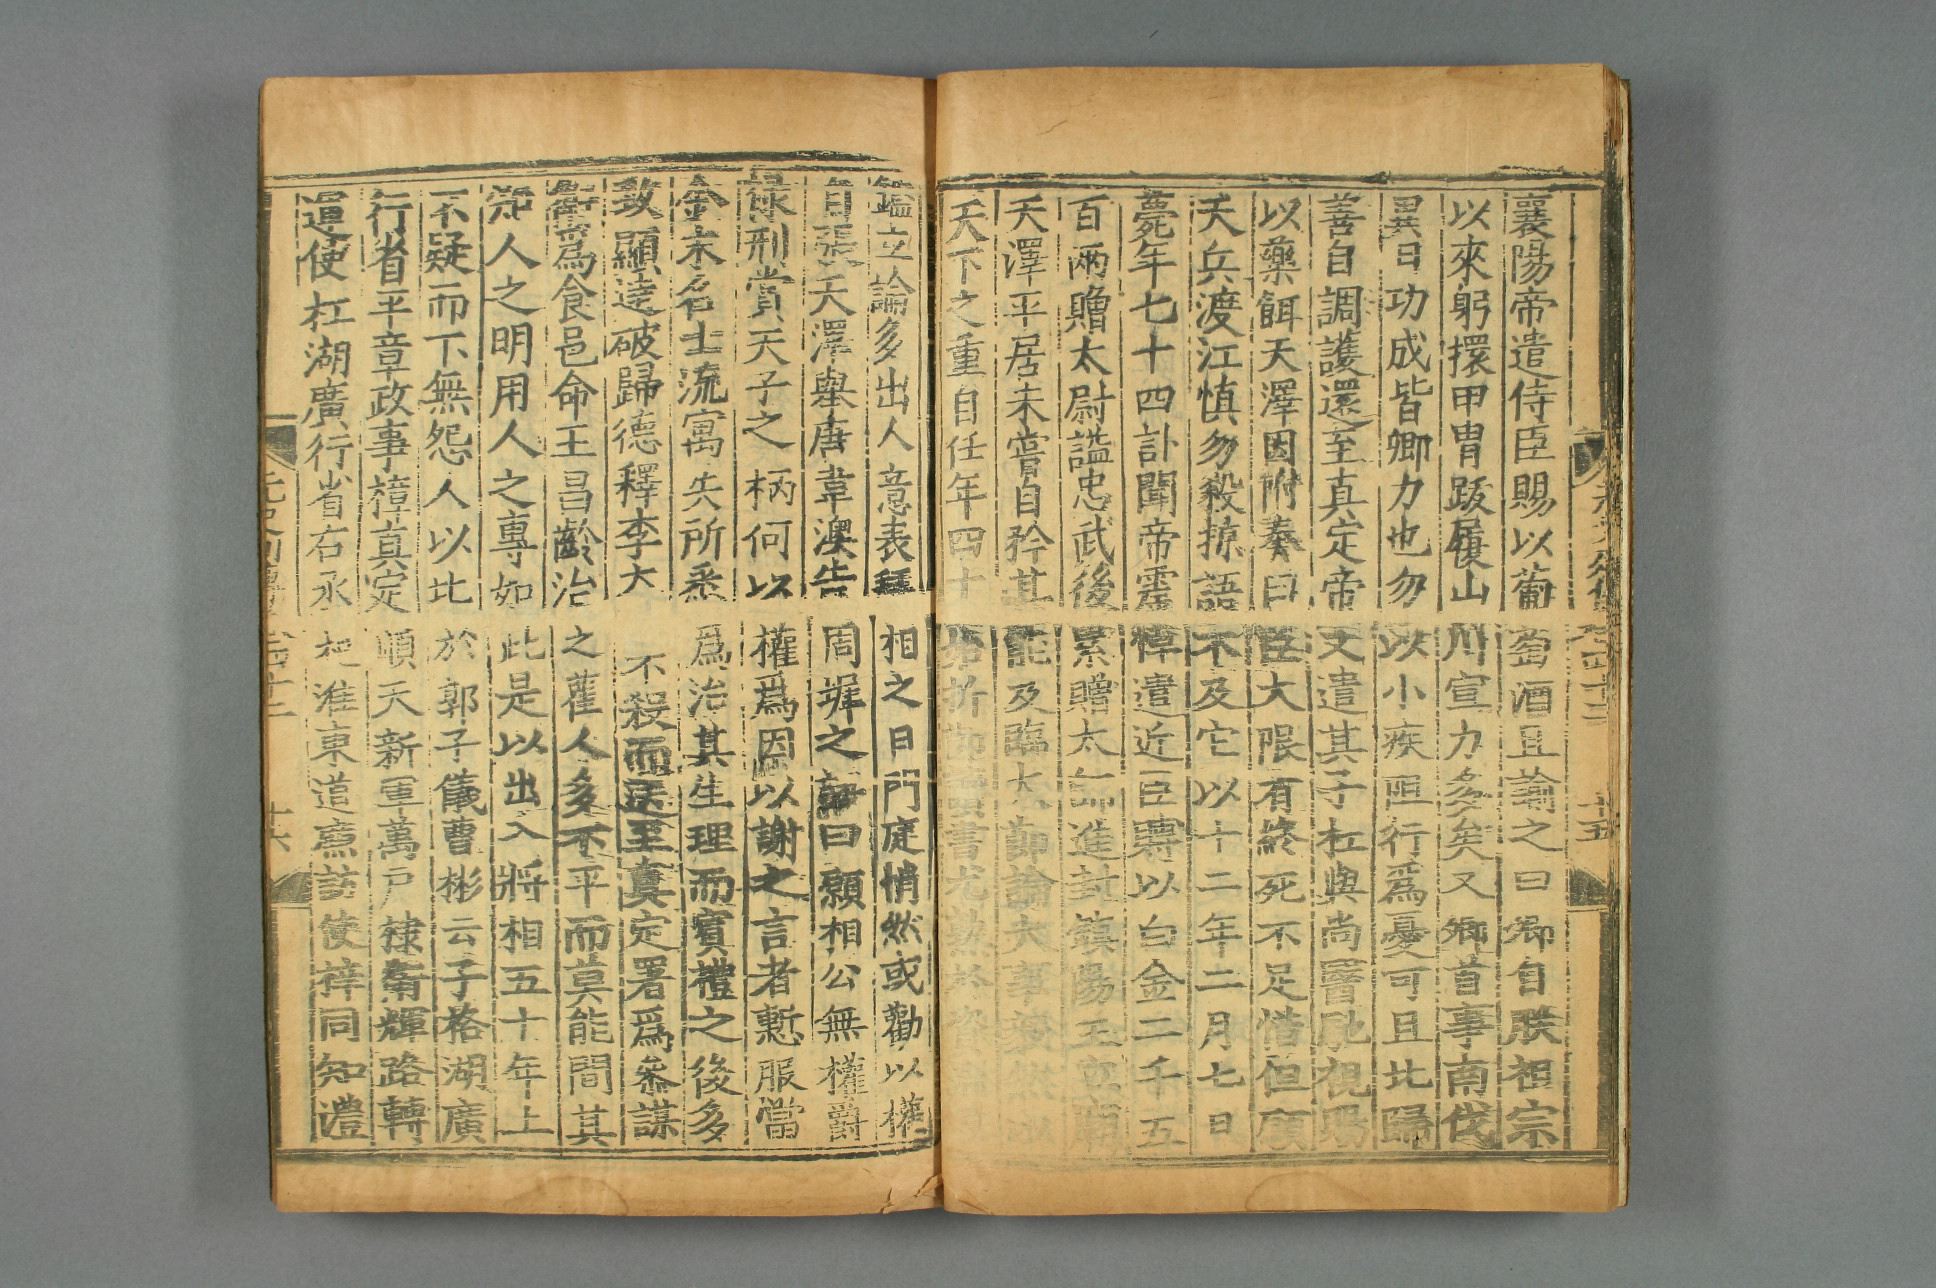 襄陽帝遣侍臣賜以葡萄酒且諭之曰卿自朕祖宗
以來躬擐甲冑跋履山川宣力多矣又卿首事南伐
異日功成皆卿力也勿以小疾阻行爲憂可且北歸
善自調護還至真定帝又遣其子杠與尚醫馳視賜
以藥餌天澤因附奏曰臣大限有終死不足惜但願
天兵渡江慎勿殺掠語不及它以十二年二月七日
薨年七十四訃聞帝震悼遣近臣賻以白金二千五
百兩贈太尉諡忠武後累贈太師進封鎮陽王立廟
天澤平居未嘗自矜其能及臨大節論大事毅然以
天下之重自任年四十始折節讀書尤熟於資
鑑立論多出人意表拜相之日門庭悄然或勸以權
自張天澤舉唐韋澳告周墀之語曰願相公無權爵
祿刑賞天子之柄何以權爲因以謝之言者慙服當
金末名士流寓失所悉爲治其生理而賓禮之後多
致顯達破歸德釋李大不殺而送至真定署爲參謀
衛爲食邑命王昌齡治之舊人多不平而莫能間其
知人之明用人之專如此是以出入將相五十年上
不疑而下無怨人以比於郭子儀曹彬云子格湖廣
行省平章政事樟真定順天新軍萬戶棣衛輝路轉
運使杠湖廣行省右丞杞淮東道廉訪使梓同知澧
元史列傳 四十二 十六